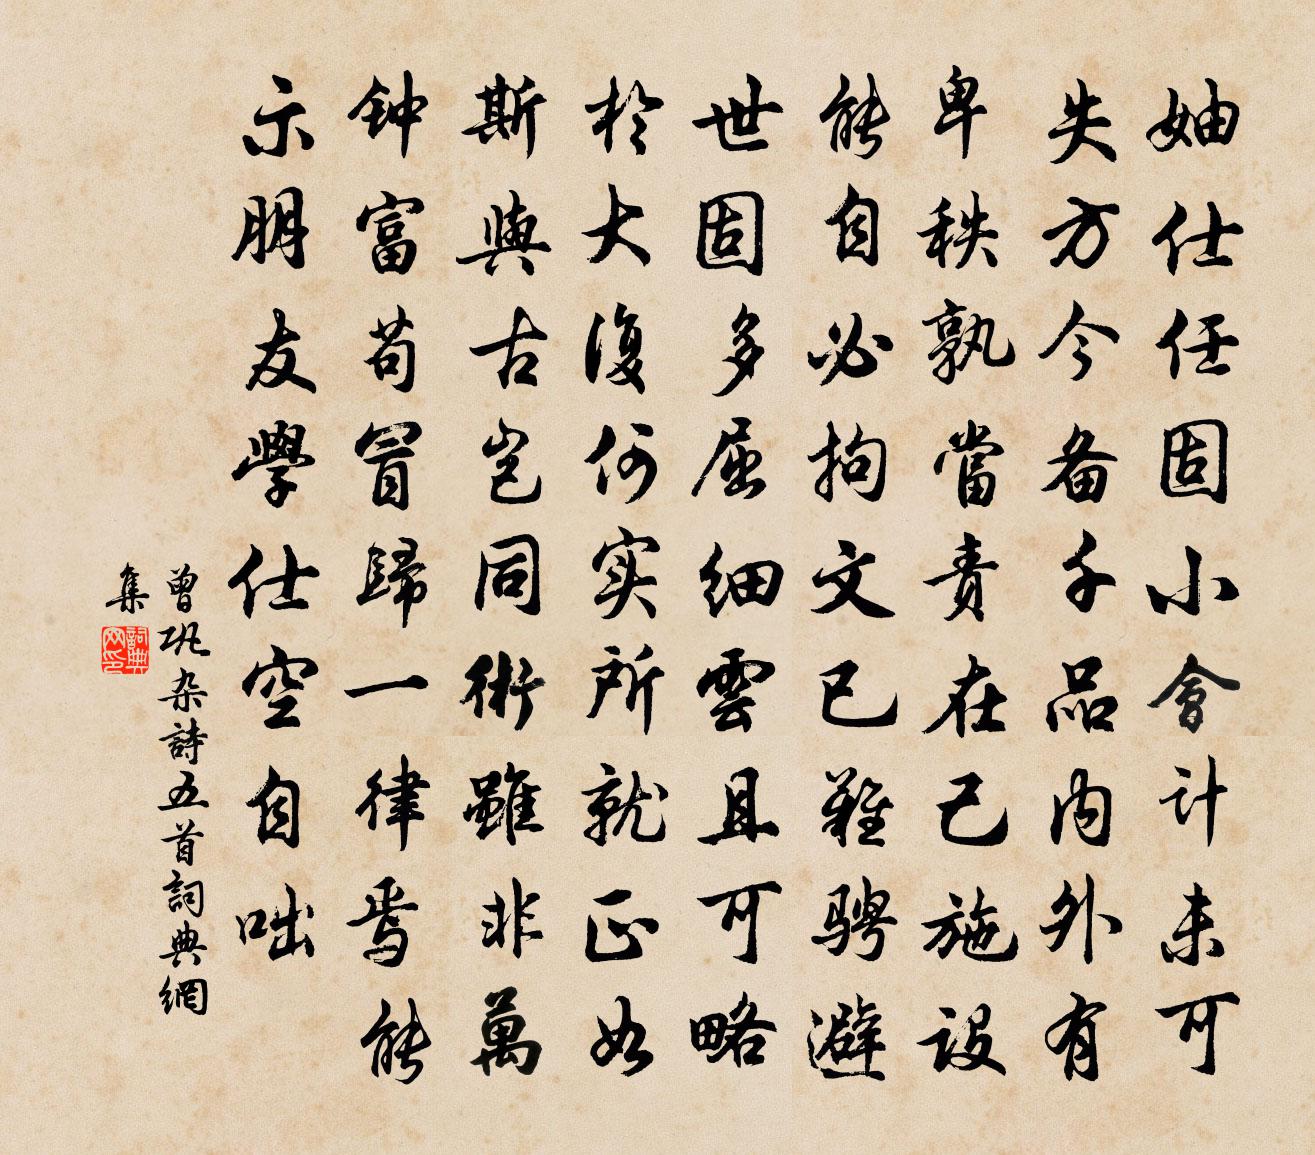 妯仕任固小會计未可
失方今备千品内外有
卑秩孰當责在己施设
能自必拘文已難骋避
世固多屈细雲且可略
於大復何实所就正如
斯與古岂同術雖非萬
钟富苟冒歸一律焉能
示朋友學仕空自咄
曾巩杂詩五首詞典網
集
詞典
网印